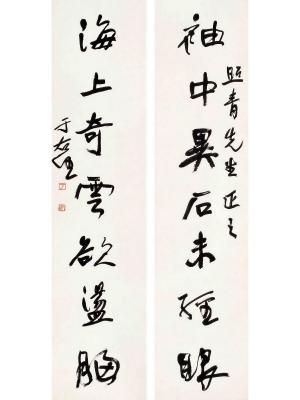 照青先生正之
袖中異石未經眼
海上奇雲欲盪胸
于右任